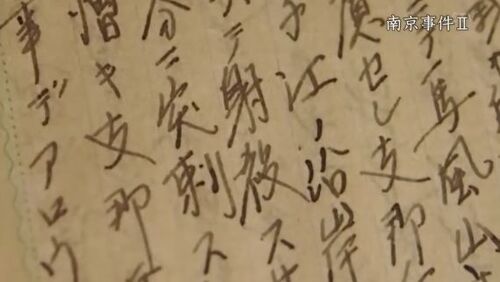 南京事件Ⅱ
テ馬風山
虜セシ支那
江ノ沿岸
テ射殺ス
分ニ突刺ス
憎キ支那
事デアロウ